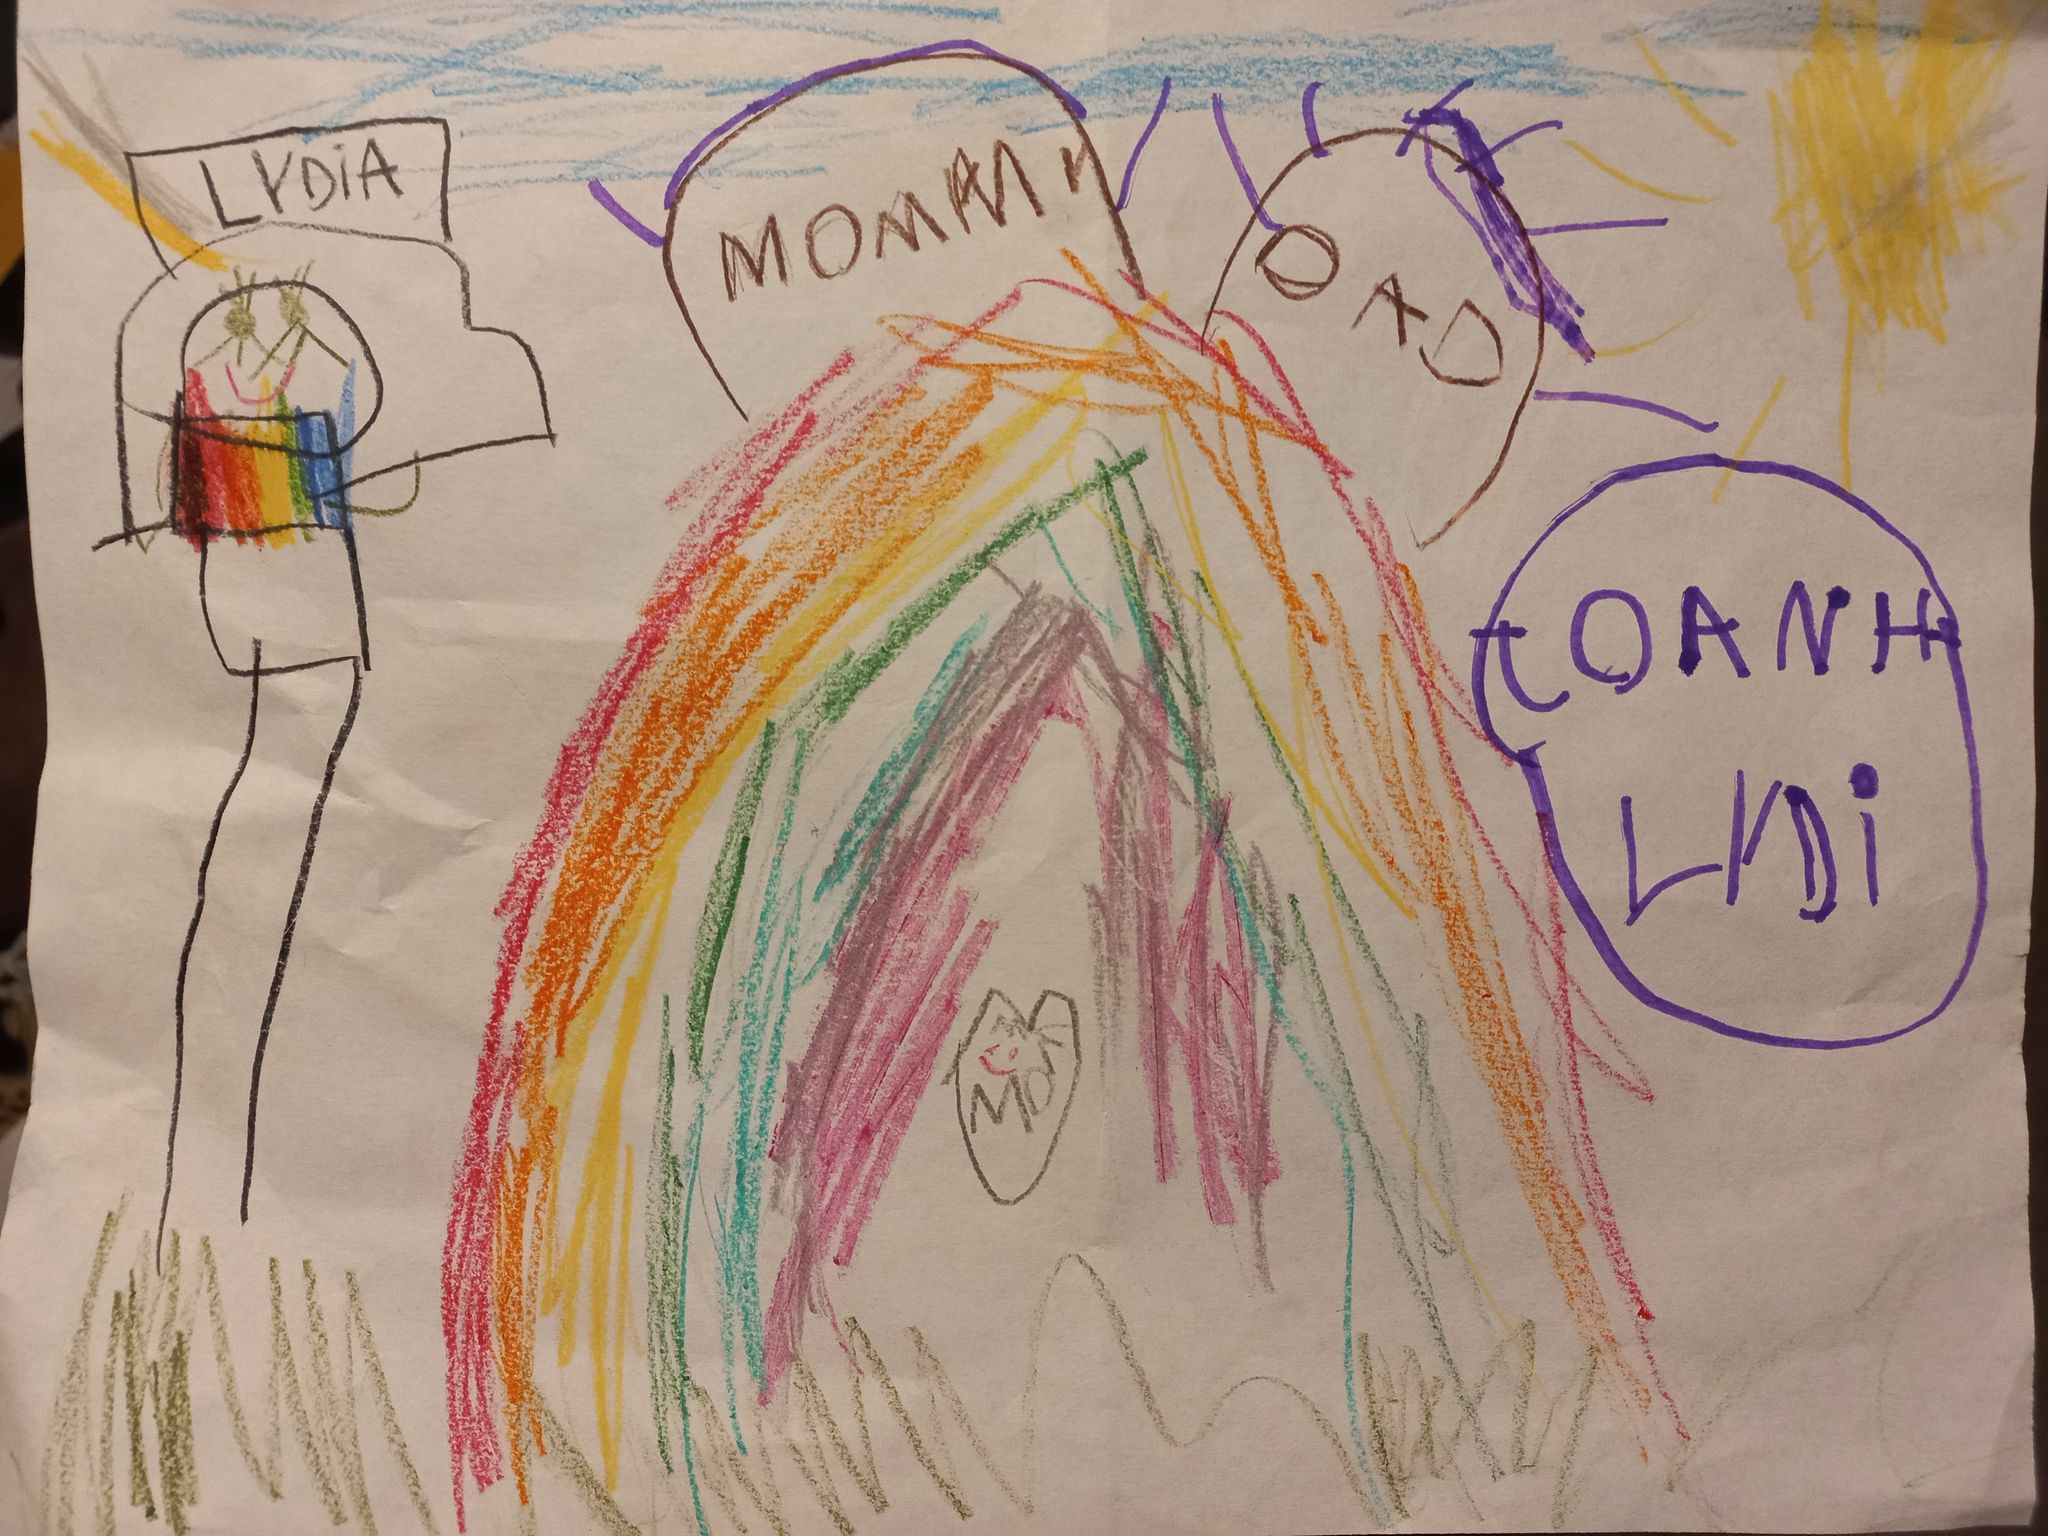 LYDiA
MOMMY
DAD
OANH
LYDi